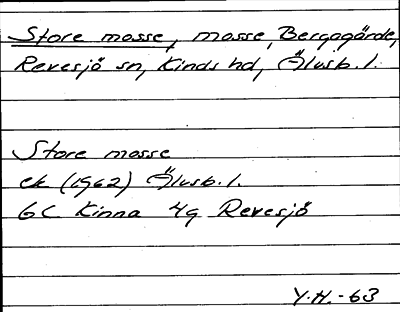 Store mosse, mosse, Bergagärde,
Revesjö sn, Kinds hd, Älvsb. l.
Store mosse
ek (1962) Älvsb. l.
6C Kinna 4g Revesjö
Y.H. -63